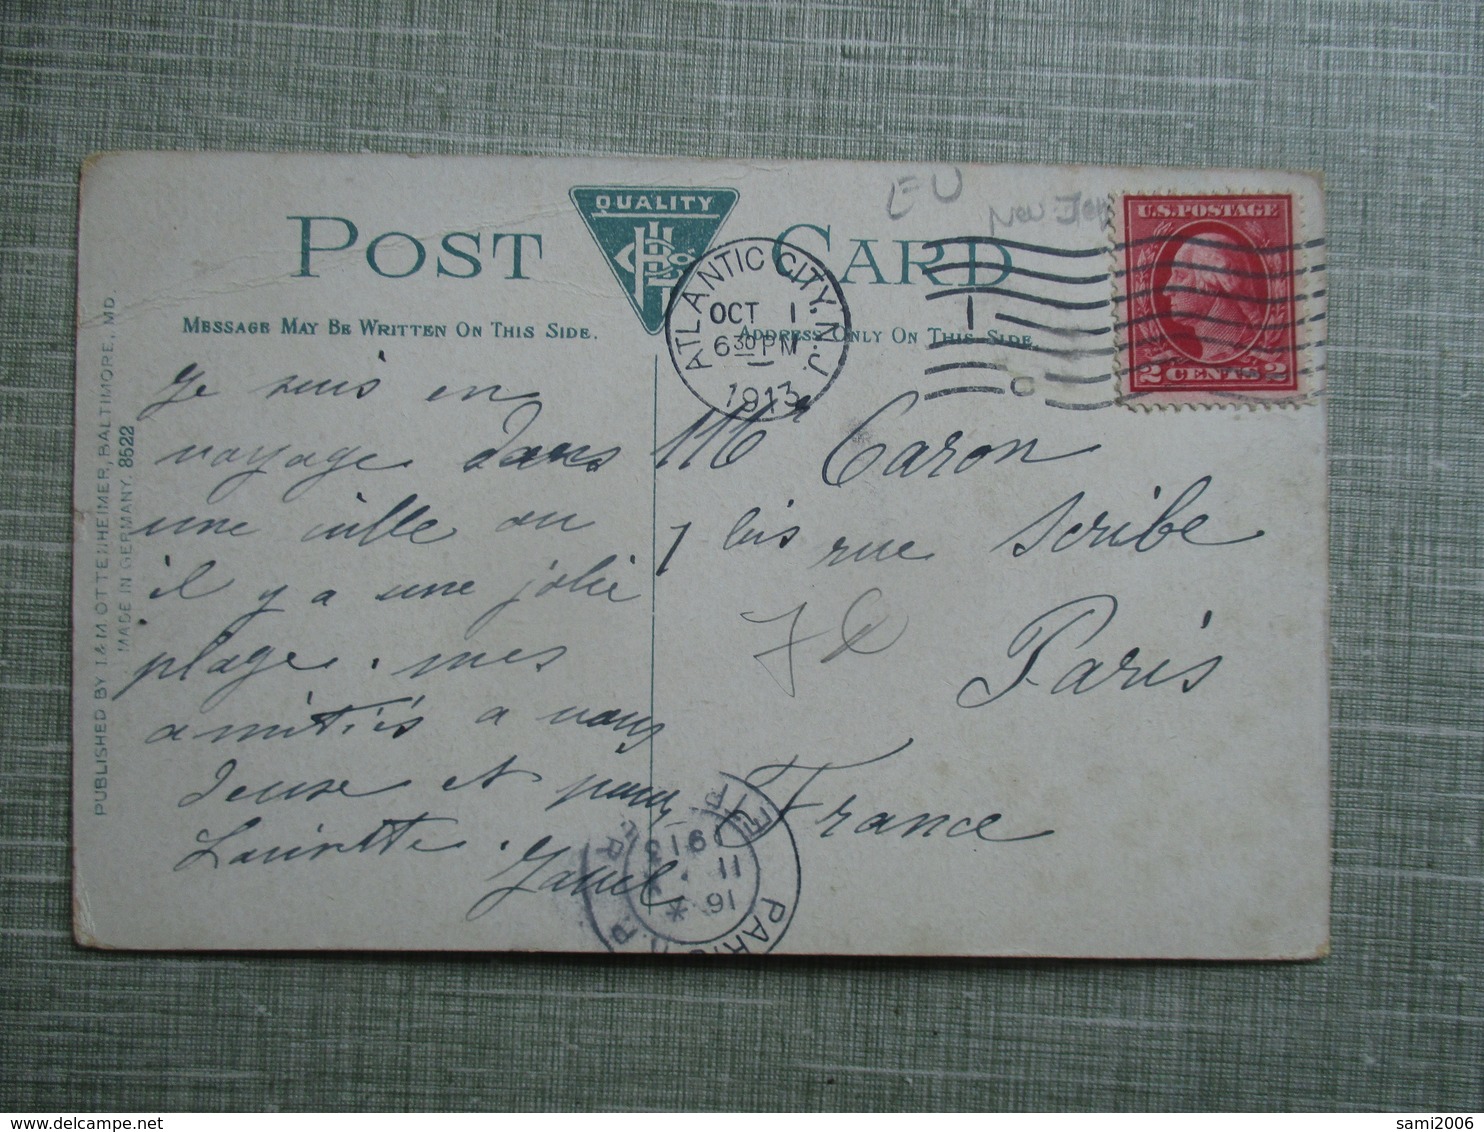 EU
New Jer
POST CARD
QUALITY
MESSAGE MAY BE WRITTEN ON THIS SIDE.
ADDRESS ONLY ON THIS SIDE.
U.S. POSTAGE
2 CENTS 2
ATLANTIC CITY, N.J.
OCT 1
6 30 PM
1913
1
Je suis en
voyage dans
une ville ou
il y a une jolie
plage. mes
amitiés a vous
deux et pour
Laurette.
Mr Caron
7 bis rue Scribe
Paris
France
7 €
PUBLISHED BY I & M OTTENHEIMER, BALTIMORE, MD.
MADE IN GERMANY. 8522
PARIS
16
11
1913
ETR
sami2006